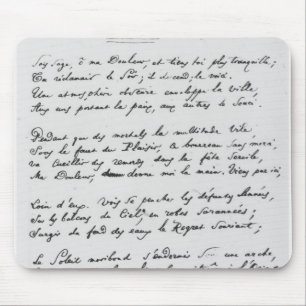 Sois sage, ô ma Douleur, et tiens toi plus tranquille ;
Tu réclamais le Soir ; il descend ; le voici.
Une atmosphère obscure enveloppe la ville,
Aux uns portant la paix, aux autres le souci.
Pendant que des mortels la multitude vile,
Sous le fouet du Plaisir, ce bourreau sans merci,
va cueillir des remords dans la fête servile,
Ma Douleur, donne moi la main. Viens par ici,
Loin d'eux. Vois se pencher les défuntes Années,
Sur les balcons du Ciel, en robes surannées ;
Surgir du fond des eaux le Regret Souriant ;
Le Soleil moribond s'endormir sous une arche,